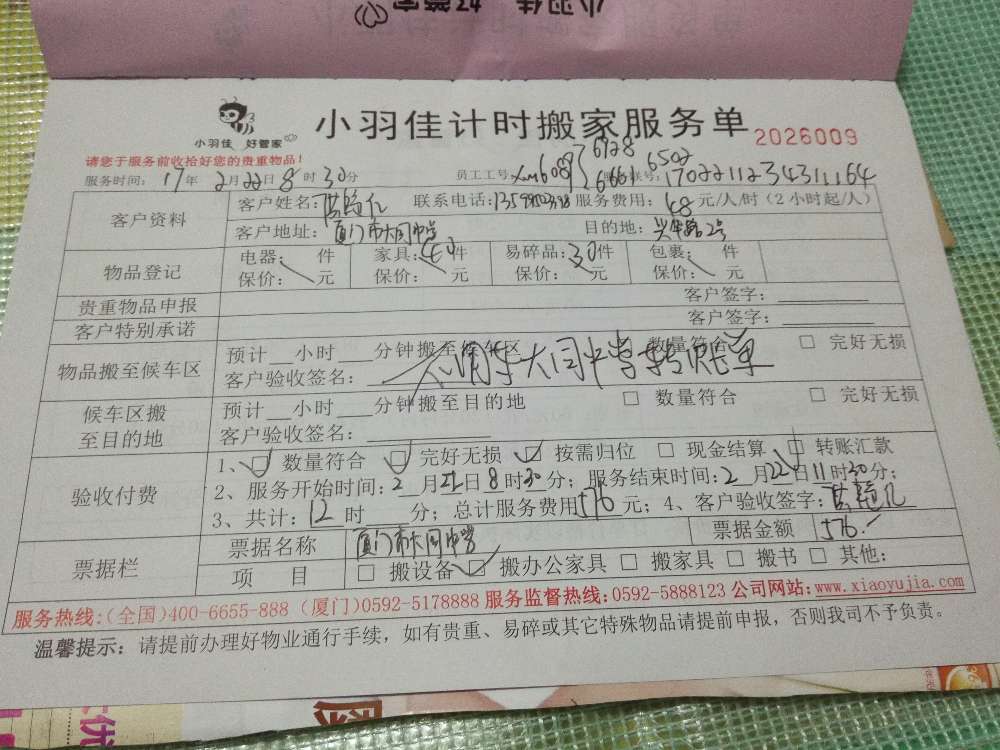 小羽佳 好管家
小羽佳 好管家
小羽佳计时搬家服务单 2026009
请您于服务前收拾好您的贵重物品!
服务时间: 17年2月22日8时30分 员工工号: xm6089 6728 6661 6502 170221123431164
客户资料 客户姓名: 联系电话: 服务费用: 48元/人/时 (2小时起/人)
客户地址: 厦门市大同中学 目的地: 兴华路2号
物品登记 电器: 件 家具: 40件 易碎品: 30件 包裹: 件
保价: 元 保价: 元 保价: 元 保价: 元
贵重物品申报 客户签字:
客户特别承诺 客户签字:
物品搬至候车区 预计 小时 分钟搬至候车区 □ 数量符合 □ 完好无损
客户验收签名: 大同中学转账单
候车区搬至目的地 预计 小时 分钟搬至目的地 □ 数量符合 □ 完好无损
客户验收签名:
验收付费 1、☑ 数量符合 ☑ 完好无损 ☑ 按需归位 □ 现金结算 ☑ 转账汇款
2、服务开始时间: 2月22日8时30分; 服务结束时间: 2月22日11时30分;
3、共计: 12时 分; 总计服务费用576元; 4、客户验收签字:
票据栏 票据名称 厦门市大同中学 票据金额 576.-
项 目 □ 搬设备 ☑ 搬办公家具 □ 搬家具 □ 搬书 □ 其他:
服务热线: (全国)400-6655-888 (厦门)0592-5178888 服务监督热线: 0592-5888123 公司网站: www.xiaoyujia.com
温馨提示: 请提前办理好物业通行手续, 如有贵重、易碎或其它特殊物品请提前申报, 否则我司不予负责。